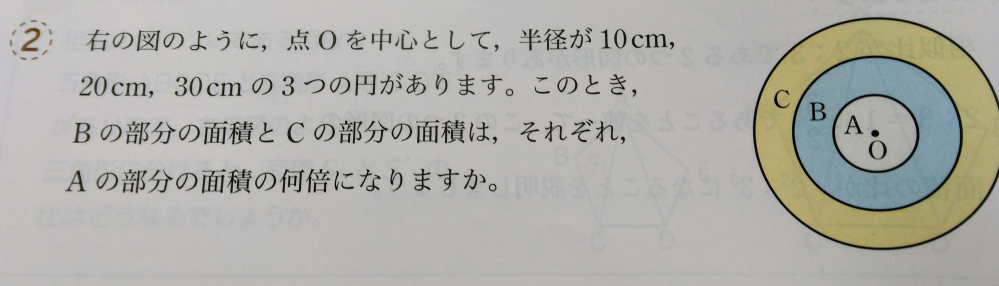 2 右の図のように，点 O を中心として，半径が 10 cm，
20 cm，30 cm の 3 つの円があります。このとき，
B の部分の面積と C の部分の面積は，それぞれ，
A の部分の面積の何倍になりますか。
C
B
A
O